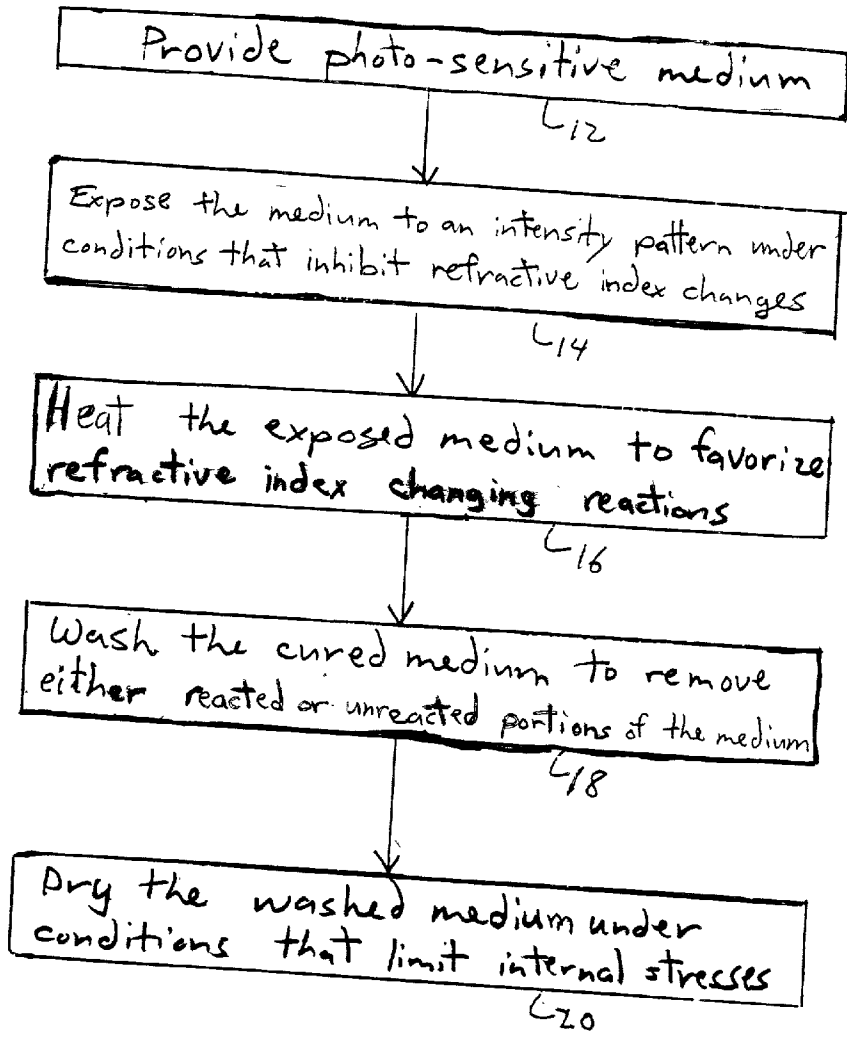 Provide photo-sensitive medium
12
Expose the medium to an intensity pattern under
conditions that inhibit refractive index changes
14
Heat the exposed medium to favorize
refractive index changing reactions
16
Wash the cured medium to remove
either reacted or unreacted portions of the medium
18
Dry the washed medium under
conditions that limit internal stresses
20